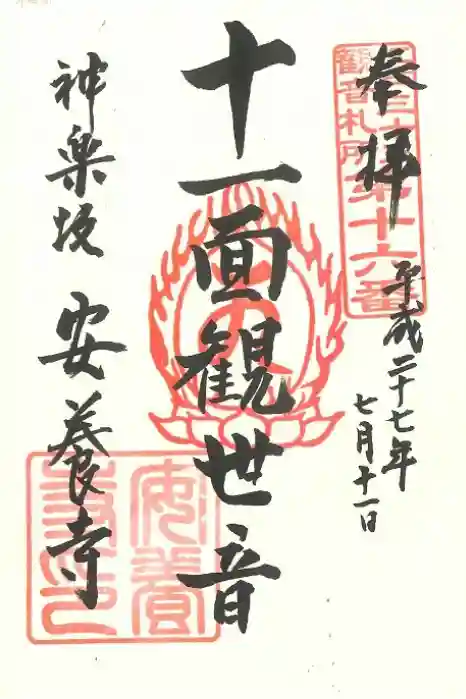 奉拝
平成二十七年
七月十一日
観音札所
第十六番
十一面観世音
神楽坂 安養寺
安養
寺印